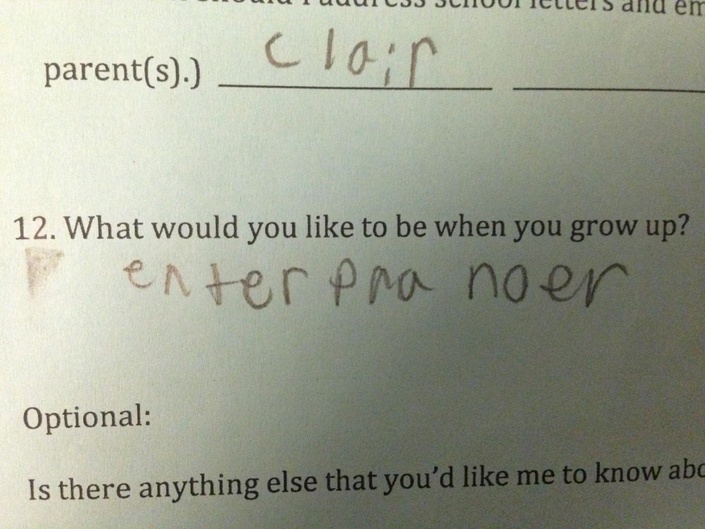 address school letters and em
parent(s).) Clair
12. What would you like to be when you grow up?
enterpra noer
Optional:
Is there anything else that you'd like me to know abo